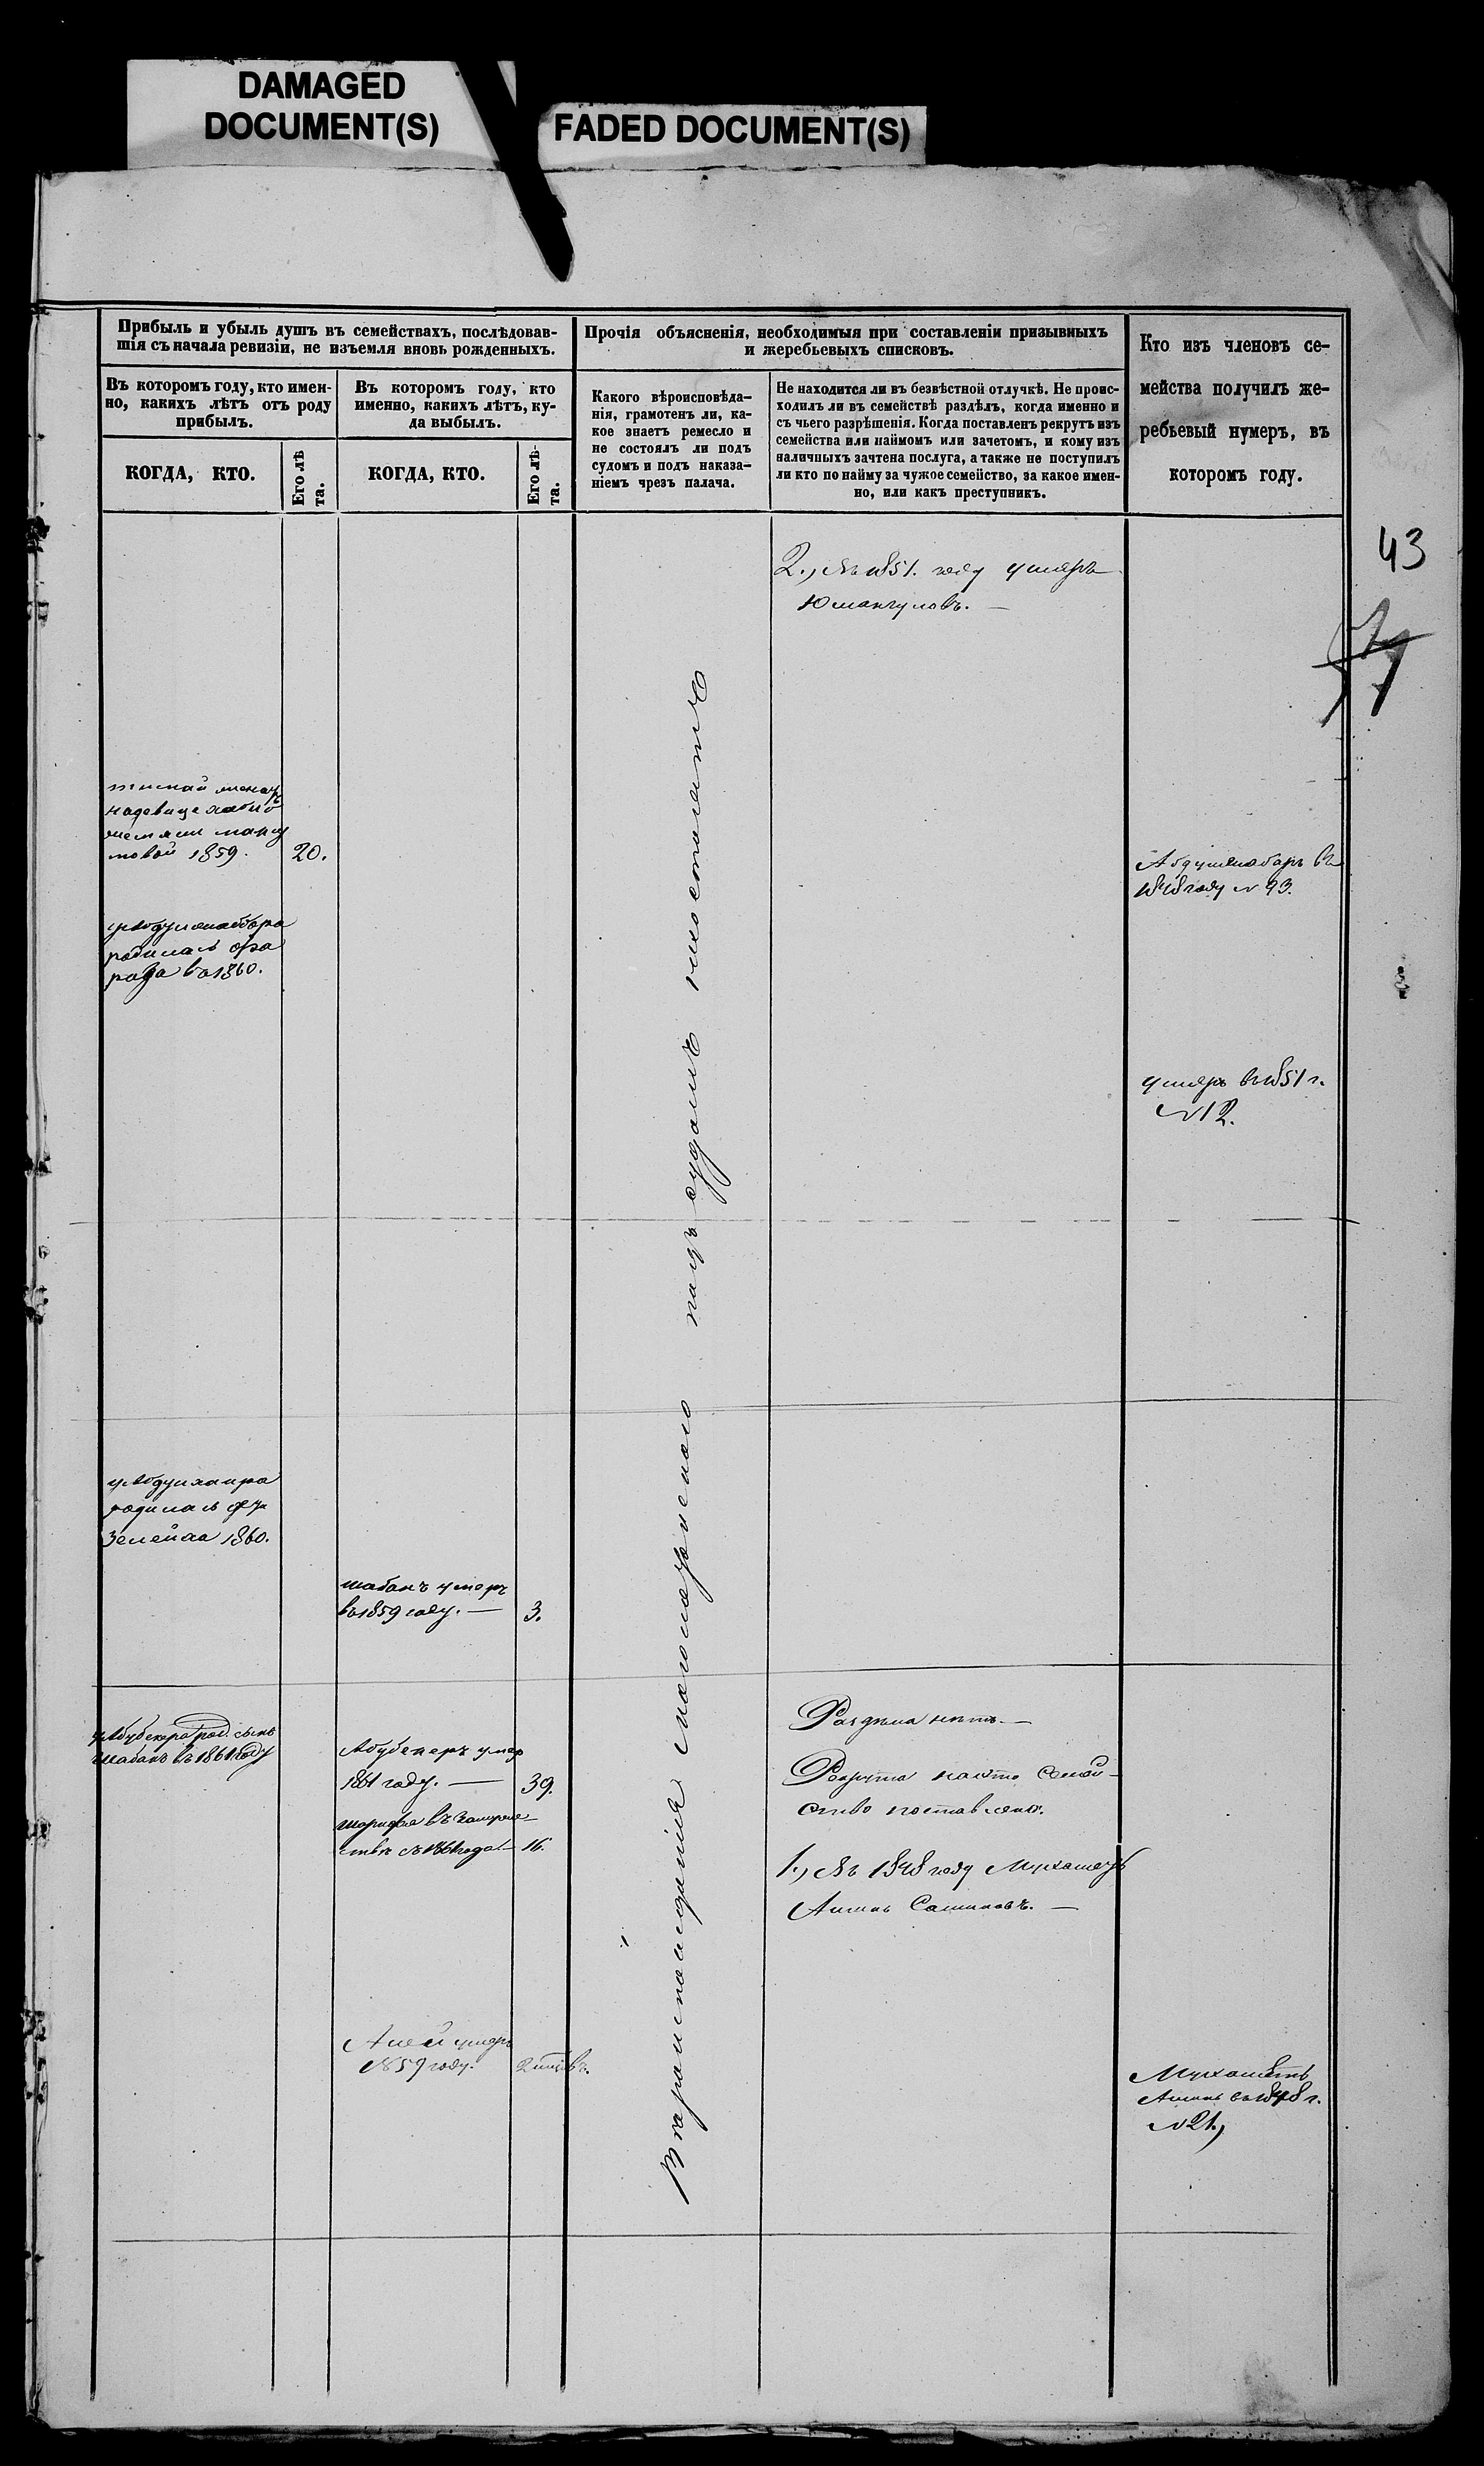 DAMAGED
DOCUMENT(S)
FADED DOCUMENT(S)
Прибыль и убыль душъ въ семействахъ, послѣдовав-
шія съ начала ревизіи, не изъемля вновь рожденныхъ.
Въ которомъ году, кто имен-
но, какихъ лѣтъ отъ роду
прибылъ.
КОГДА, КТО.
Его лѣ
та.
Въ которомъ году, кто
именно, какихъ лѣтъ, ку-
да выбылъ.
КОГДА, КТО.
Его лѣ-
та.
Прочія объясненія, необходимыя при составленіи призывныхъ
и жеребьевыхъ списковъ.
Какого вѣроисповѣда-
нія, грамотенъ ли, ка-
кое знаетъ ремесло и
не состоялъ ли подъ
судомъ и подъ наказа-
ніемъ чрезъ палача.
Не находится ли въ безвѣстной отлучкѣ. Не проис-
ходилъ ли въ семействѣ раздѣлъ, когда именно и
съ чьего разрѣшенія. Когда поставленъ рекрутъ изъ
семейства или наймомъ или зачетомъ, и кому изъ
наличныхъ зачтена послуга, а также не поступилъ
ли кто по найму за чужое семейство, за какое имен-
но, или какъ преступникъ.
Кто изъ членовъ се-
мейства получилъ же-
ребьевый нумеръ, въ
которомъ году.
43
2., Въ 1851. году умеръ
Юмангуловъ. —
1859. 20.
у Абдулжаббара
родилась
въ 1860.
Абдулжабаръ въ
1848 году № 93.
умеръ въ 1851 г.
№ 12.
родилась
1860.
шабанъ умеръ
въ 1859 году. — 3.
у Абубекера род. сынъ
шабанъ въ 1861 году
Абубекеръ умер
1861 году. — 39.
въ замуже-
ствѣ съ 1861 года — 16.
Алей умеръ
1859 году.
Вѣроисповѣданія магометанскаго подъ судомъ не состоялъ
Раздѣла нѣтъ. —
Рекрута семей-
ство поставлено.
1., Въ 1848 году Мухаметъ
Аминъ —
Мухаметъ
Аминъ въ 1848 г.
№ 21.,